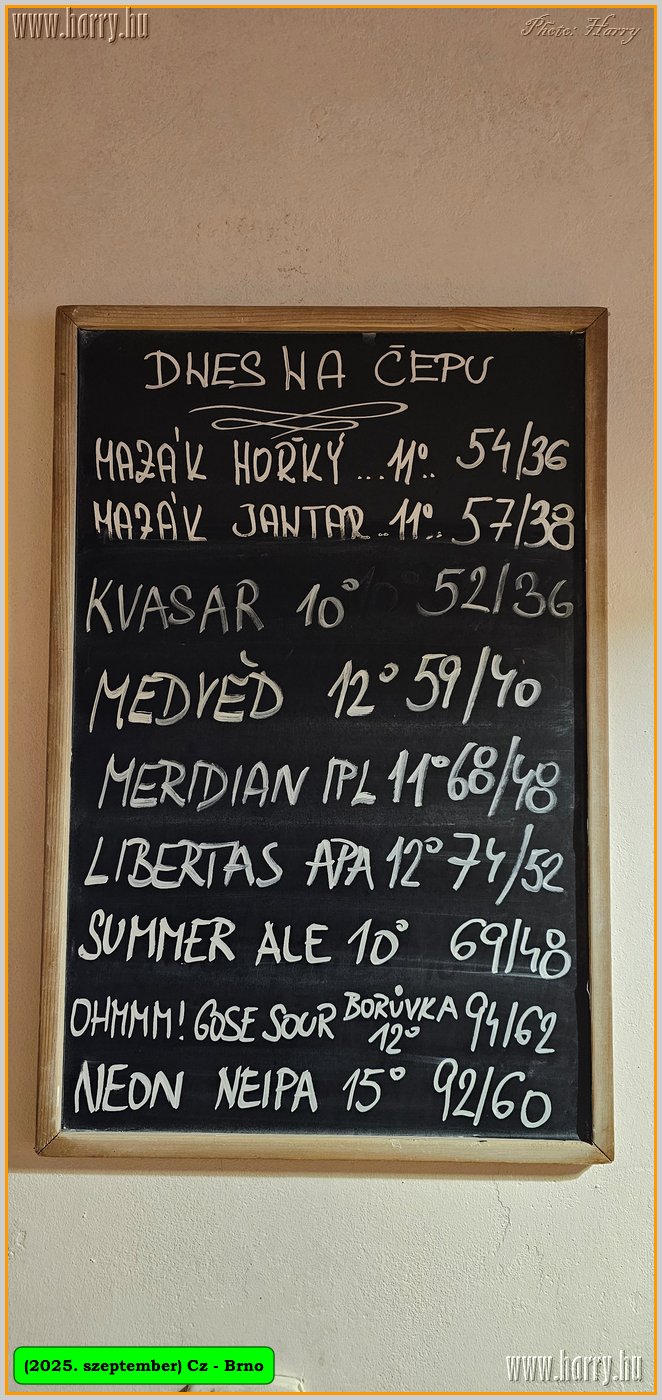 www.harry.hu
Photo: Harry
DNES NA ČEPU
MAZÁK HOŘKÝ ... 11°.. 54/36
MAZÁK JANTAR .. 11°.. 57/38
KVASAR 10° 52/36
MEDVĚD 12° 59/40
MERIDIAN IPL 11° 68/48
LIBERTAS APA 12° 74/52
SUMMER ALE 10° 69/48
OHMMM! GOSE SOUR BORŮVKA 12° 94/62
NEON NEIPA 15° 92/60
(2025. szeptember) Cz - Brno
www.harry.hu